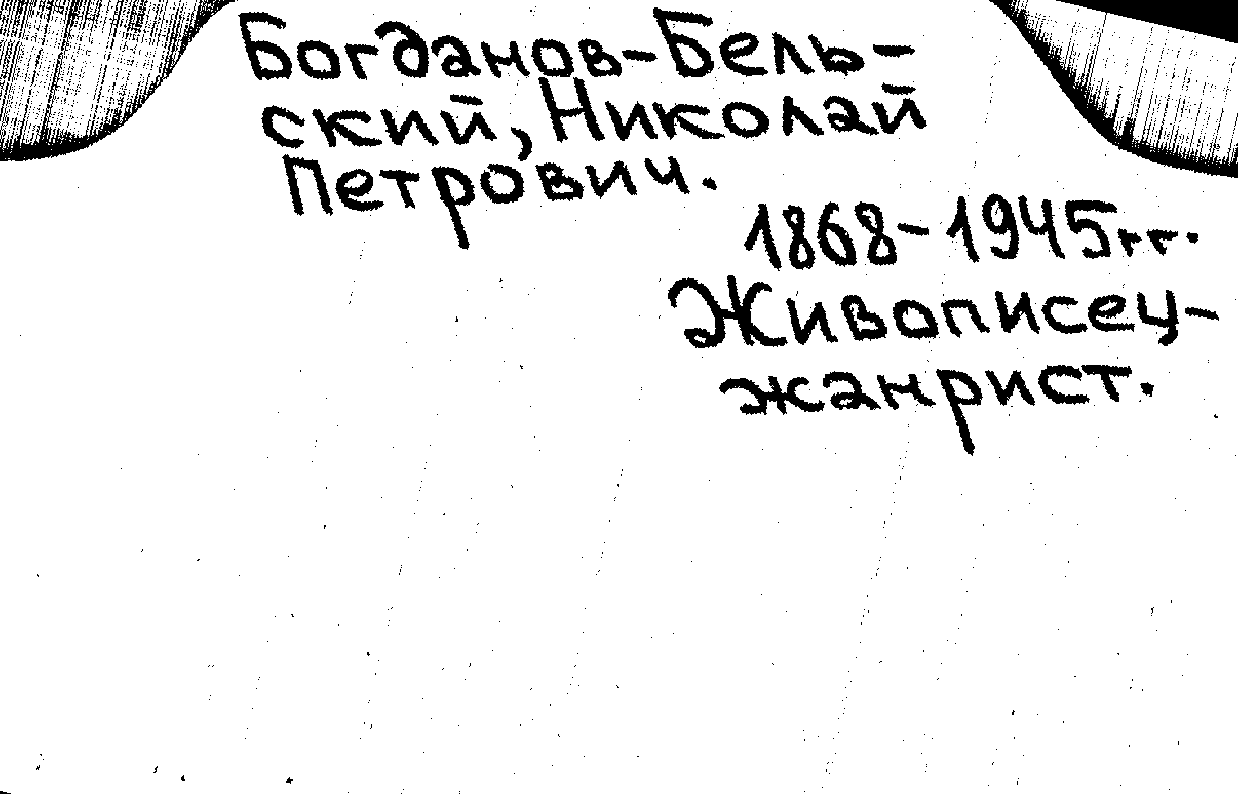 Богданов-Бель-
ский, Николай
Петрович.
1868-1945гг.
Живописец-
жанрист.